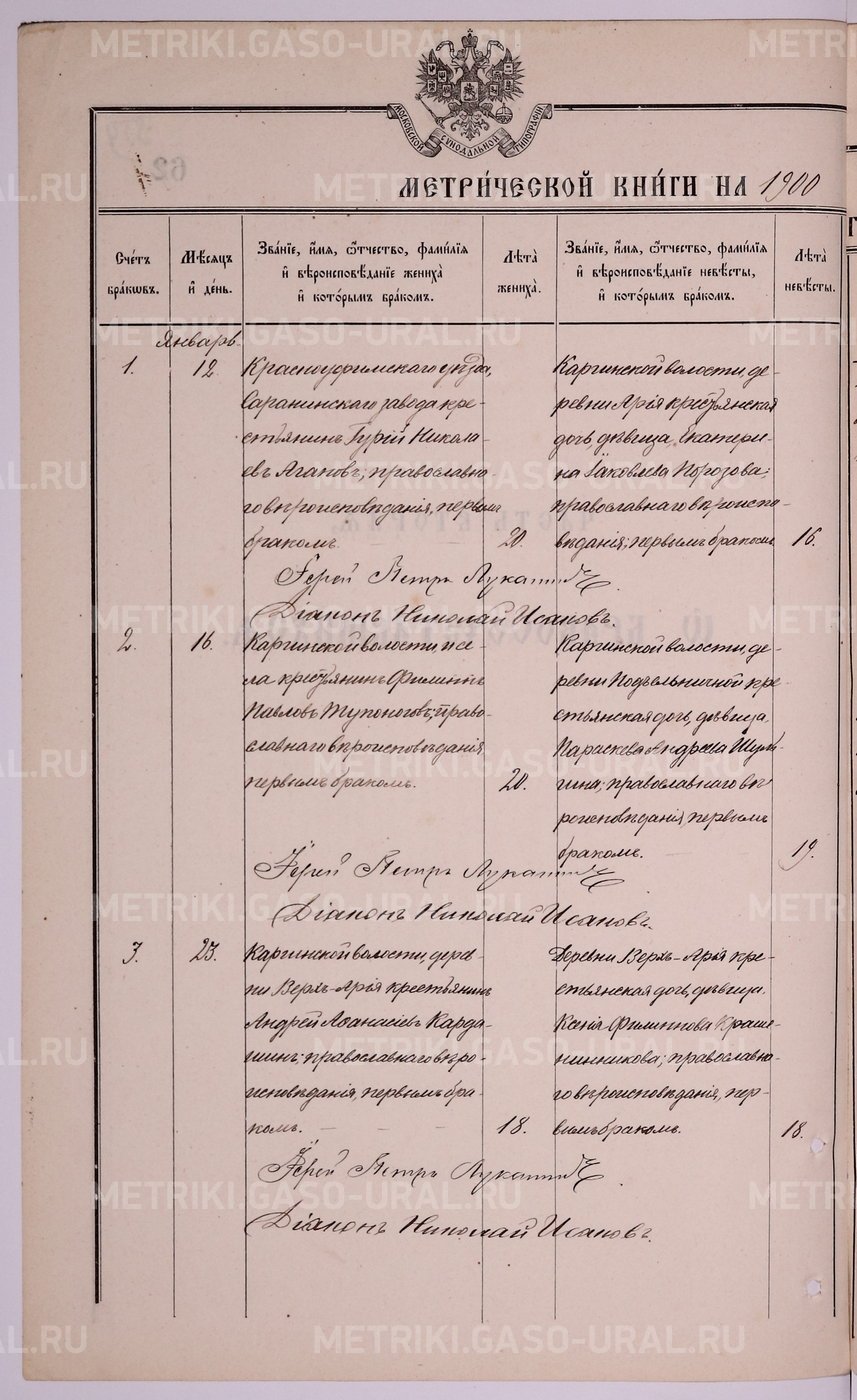 METRIKI.GASO-URAL.RU
МОСКОВСКОЙ СѴНОДАЛЬНОЙ ТИПОГРАФІИ
МЕТРИ́ЧЕСКОЙ КНИ́ГИ НА 1900
Счéтъ бра́кѡвъ.
Мѣ́сяцъ и҆ де́нь.
Зва́нїе, и҆́мѧ, ѻ҆́тчество, фами́лїѧ и҆ вѣроисповѣ́данїе жениха̀ и҆ кото́рымъ бра́комъ.
Лѣ́та жениха̀.
Зва́нїе, и҆́мѧ, ѻ҆́тчество, фами́лїѧ и҆ вѣроисповѣ́данїе невѣ́сты, и҆ кото́рымъ бра́комъ.
Лѣ́та невѣ́сты.
Январь
1.
12.
Красноуфимскаго уѣзда,
Саранинскаго завода кре-
стьянинъ Гурій Никола-
евъ Агаповъ; православна-
го вѣроисповѣданія, первымъ
бракомъ
20.
Каргинской волости, де-
ревни Арія крестьянская
дочь, дѣвица, Екатери-
на Іаковлева Порозова;
православнаго вѣроиспо-
вѣданія; первымъ бракомъ
16.
Іерей Петръ Лукан
Діаконъ Николай Исаковъ.
2.
16.
Каргинской волости, и се-
ла крестьянинъ Филиппъ
Павловъ Тупоноговъ; право-
славнаго вѣроисповѣданія
первымъ бракомъ.
20.
Каргинской волости, де-
ревни Подъельничной кре-
стьянская дочь, дѣвица,
Параскева Андреева Шулы-
гина; православнаго вѣ-
роисповѣданія, первымъ
бракомъ.
19.
Іерей Петръ
Діаконъ Николай Исаковъ.
3.
23.
Каргинской волости, дерев-
ни Верхъ-Арія крестьянинъ
Андрей Аѳанасіевъ Карда-
шинъ; православнаго вѣро-
исповѣданія, первымъ бра-
комъ.
18.
Деревни Верхъ-Арія кре-
стьянская дочь, дѣвица,
Ксенія Филиппова Краше-
нинникова; православна-
го вѣроисповѣданія, пер-
вымъ бракомъ.
18.
Іерей Петръ
Діаконъ Николай Исаковъ.